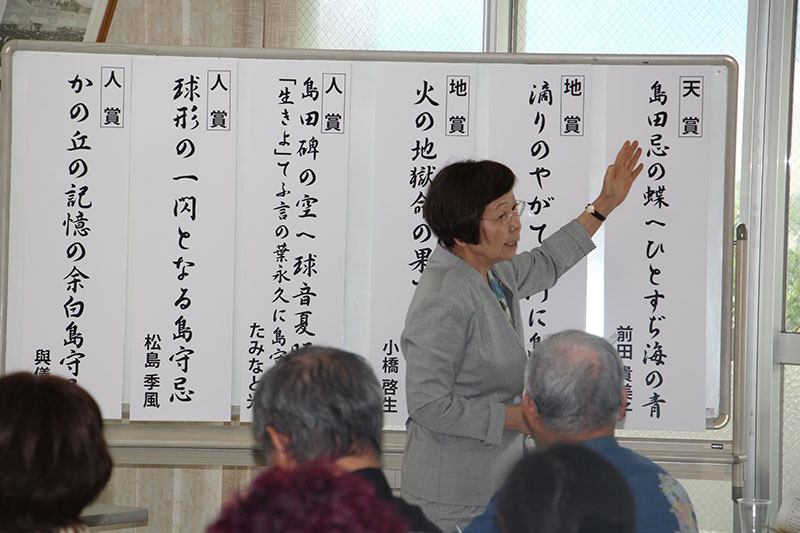 天賞
島田忌の蝶へひとすぢ海の青
前田貴美子
地賞
滴りのやがて
に島
地賞
火の地獄命の果
小橋啓生
人賞
島田碑の空へ球音夏
「生きよ」てふ言の葉永久に島守
たみなと光
人賞
球形の一閃となる島守忌
松島季風
人賞
かの丘の記憶の余白島守
與儀